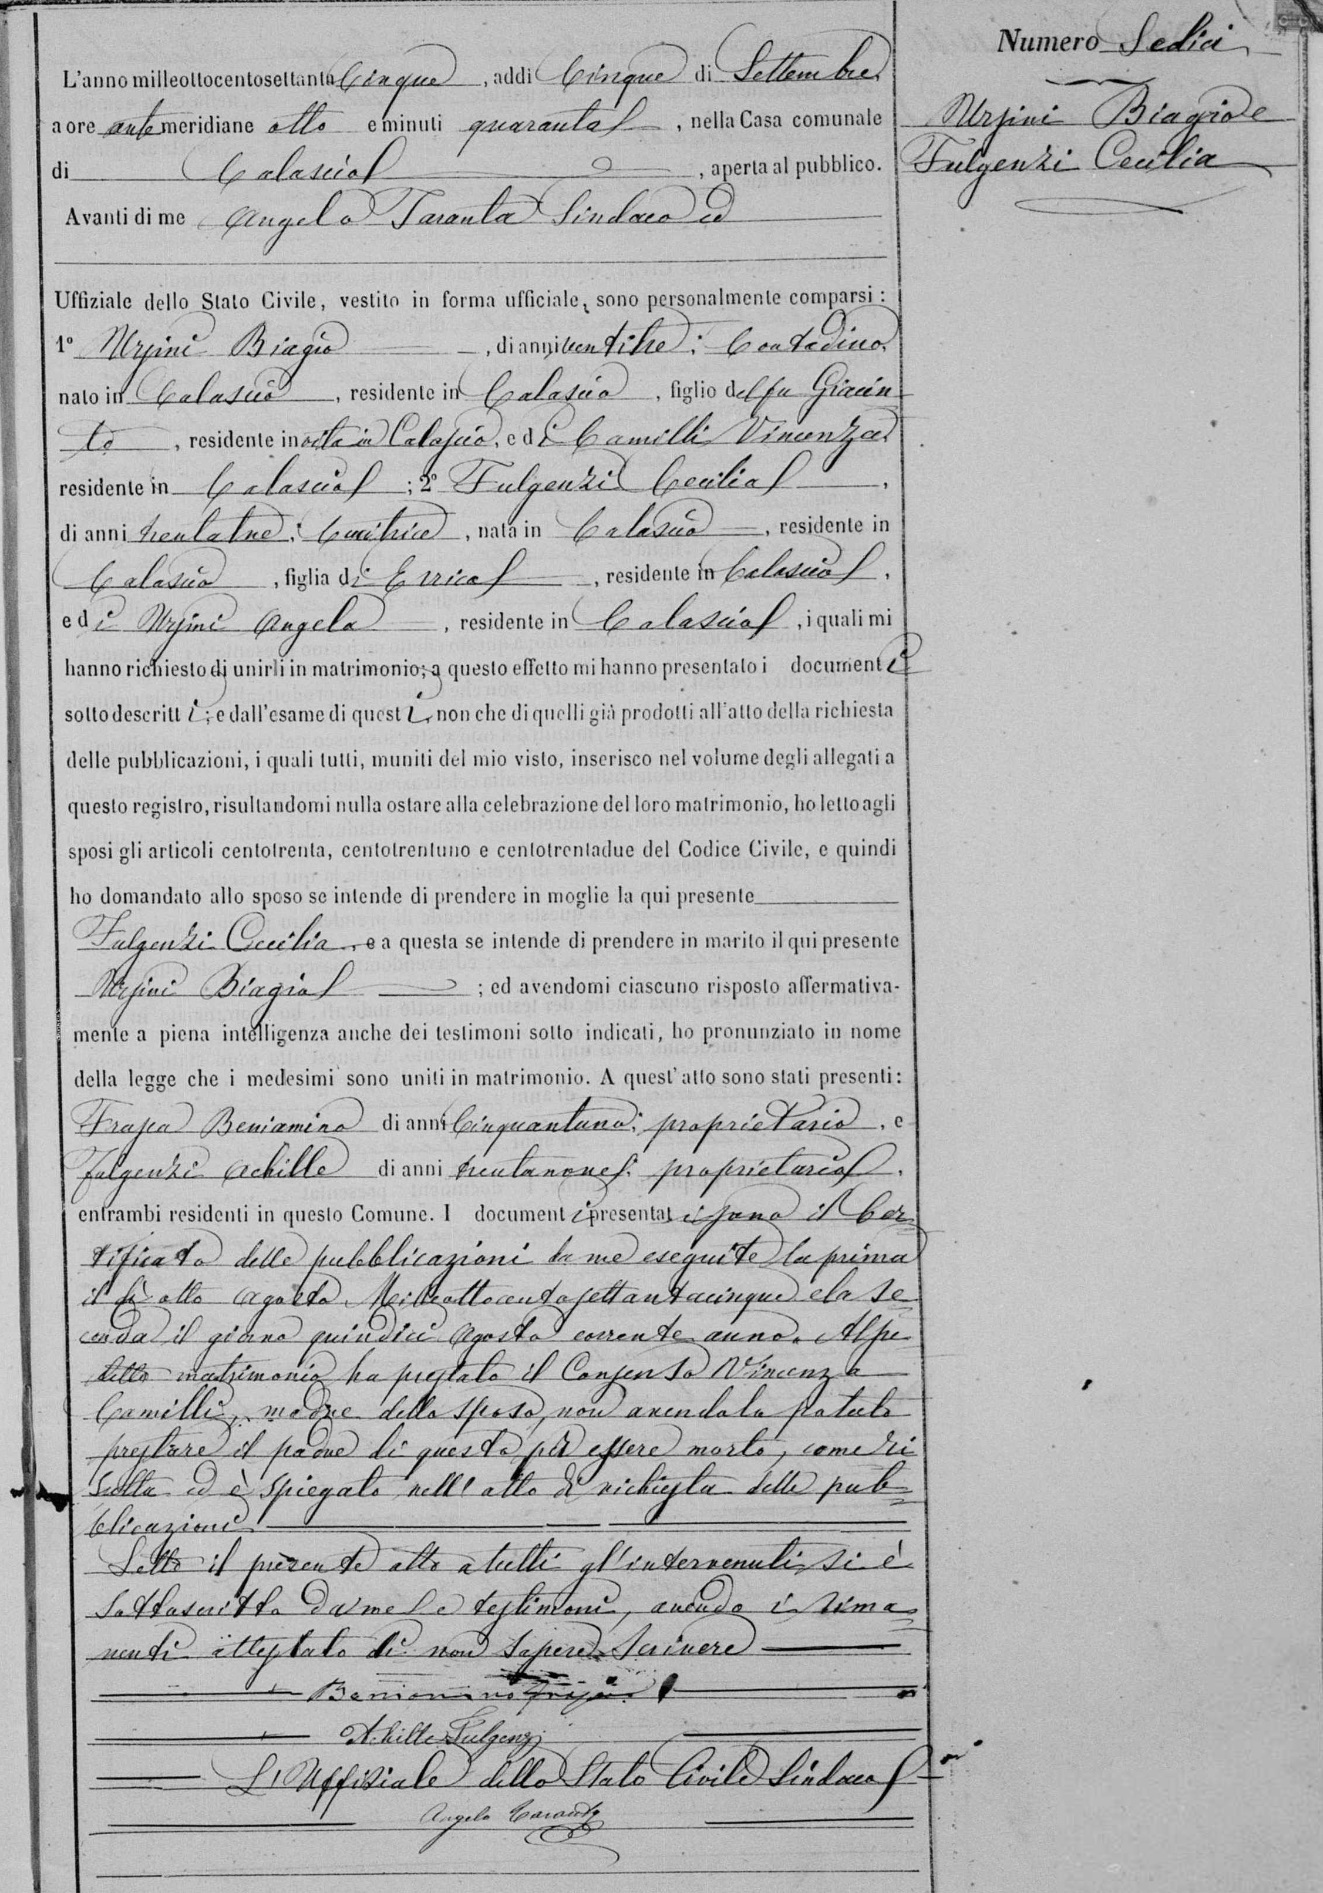 Numero Sedici
Ursini Biagio e
Fulgenzi Cecilia
L'anno milleottocentosettanta Cinque, addi Cinque di Settembre
a ore antemeridiane otto e minuti quaranta, nella Casa comunale
di Calascio, aperta al pubblico.
Avanti di me Angelo Taranta Sindaco ed
Uffiziale dello Stato Civile, vestito in forma ufficiale, sono personalmente comparsi:
1º Ursini Biagio, di anni ventitre; Contadino,
nato in Calascio, residente in Calascio, figlio del fu Giacin
to, residente in vita in Calascio, e di Camilli Vincenza
residente in Calascio; 2º Fulgenzi Cecilia,
di anni trentatre; Cucitrice, nata in Calascio, residente in
Calascio, figlia di Errico, residente in Calascio,
e di Ursini Angela, residente in Calascio, i quali mi
hanno richiesto di unirli in matrimonio; a questo effetto mi hanno presentato i documenti
sotto descritti; e dall'esame di questi, non che di quelli già prodotti all'atto della richiesta
delle pubblicazioni, i quali tutti, muniti del mio visto, inserisco nel volume degli allegati a
questo registro, risultandomi nulla ostare alla celebrazione del loro matrimonio, ho letto agli
sposi gli articoli centotrenta, centotrentuno e centotrentadue del Codice Civile, e quindi
ho domandato allo sposo se intende di prendere in moglie la qui presente
Fulgenzi Cecilia, e a questa se intende di prendere in marito il qui presente
Ursini Biagio; ed avendomi ciascuno risposto affermativa-
mente a piena intelligenza anche dei testimoni sotto indicati, ho pronunziato in nome
della legge che i medesimi sono uniti in matrimonio. A quest'atto sono stati presenti:
Frasca Beniamino di anni Cinquantuno; proprietario, e
Fulgenzi Achille di anni trentanove; proprietario,
entrambi residenti in questo Comune. I documenti presentati sono il Cer
tificato delle pubblicazioni da me eseguite la prima
il dì otto Agosto Milleottocentosettantacinque e la se
conda il giorno quindici Agosto corrente anno. Al pre
detto matrimonio ha prestato il Consenso Vincenza
Camilli, madre dello sposo, non avendolo potuto
prestare il padre di questo per essere morto, come ri
sulta ed è spiegato nell'atto di richiesta delle pub
blicazioni.
Letto il presente atto a tutti gl'intervenuti, si è
sottoscritto da me e testimoni, avendo i rima
nenti attestato di non sapere scrivere
Beniamino Frasca
Achille Fulgenzi
L'Uffiziale dello Stato Civile Sindaco
Angelo Taranta